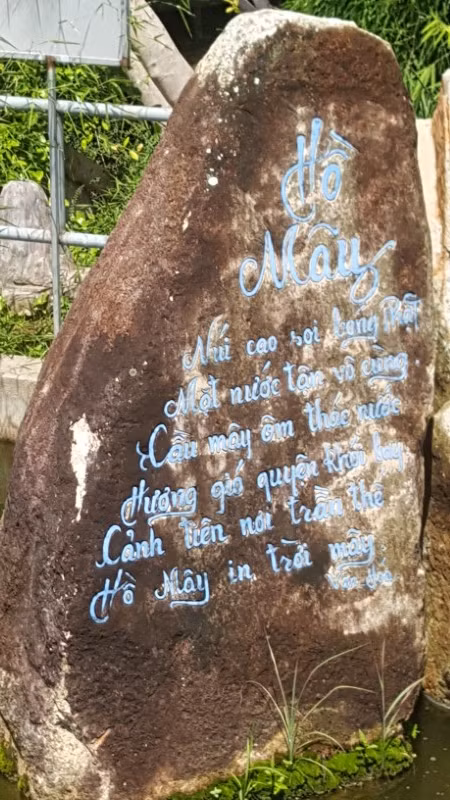 Hồ
Mây
Núi cao soi bóng
Mặt nước tận vô cùng
Cầu mây ôm thác nước
Hương gió quyện khói bay
Cảnh tiên nơi trần thế
Hồ Mây in trời mây